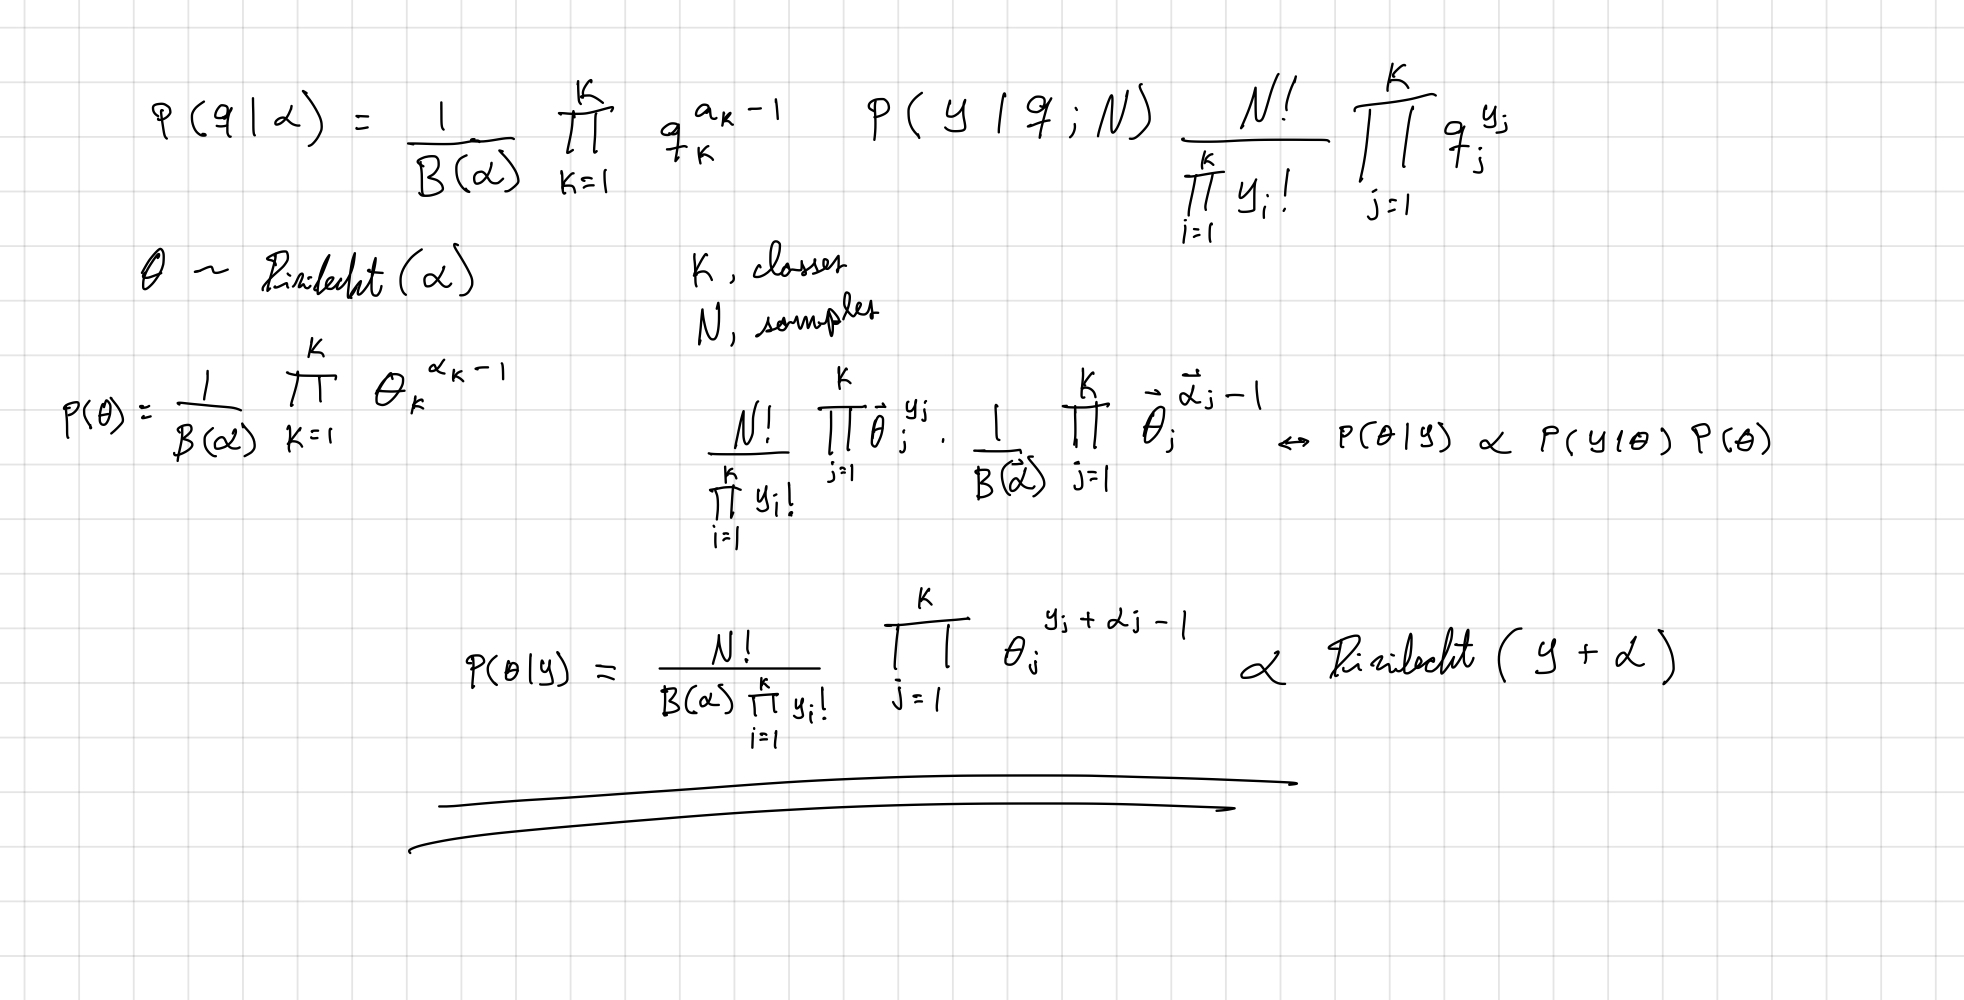 P(q|α) = 1/B(α) ∏_{k=1}^{K} q_k^{a_k-1}   P(y|q;N) N!/∏_{i=1}^{k} y_i! ∏_{j=1}^{K} q_j^{y_j}
θ ~ Dirilecht(α)
K, classes
N, samples
P(θ) = 1/B(α) ∏_{k=1}^{K} θ_k^{α_k-1}
N!/∏_{i=1}^{k} y_i! ∏_{j=1}^{K} θ⃗_j^{y_j} · 1/B(α⃗) ∏_{j=1}^{K} θ⃗_j^{α⃗_j-1} ↔ P(θ|y) ∝ P(y|θ) P(θ)
P(θ|y) = N!/B(α) ∏_{i=1}^{k} y_i! ∏_{j=1}^{K} θ_j^{y_j+α_j-1} ∝ Dirilecht(y+α)